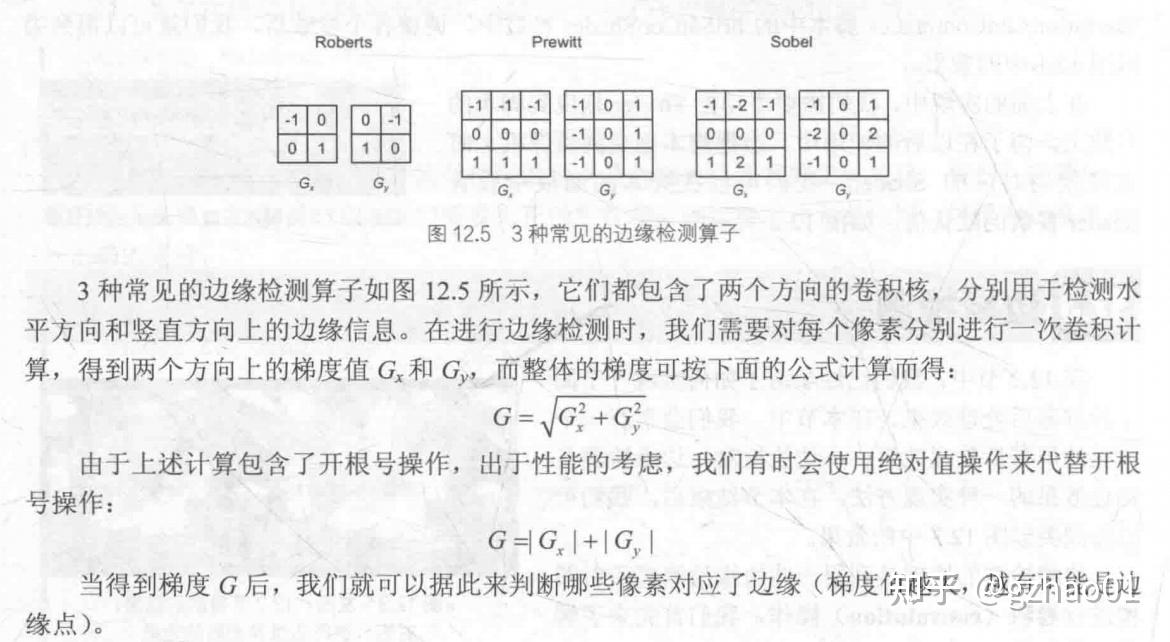 Roberts Prewitt Sobel
-1 0 0 -1 -1 -1 -1 -1 0 1 -1 -2 -1 -1 0 1
0 1 1 0 0 0 0 -1 0 1 0 0 0 -2 0 2
1 1 1 -1 0 1 1 2 1 -1 0 1
Gx Gy Gx Gy Gx Gy
图 12.5 3 种常见的边缘检测算子
3 种常见的边缘检测算子如图 12.5 所示，它们都包含了两个方向的卷积核，分别用于检测水
平方向和竖直方向上的边缘信息。在进行边缘检测时，我们需要对每个像素分别进行一次卷积计
算，得到两个方向上的梯度值 Gx 和 Gy，而整体的梯度可按下面的公式计算而得：
G = √(Gx² + Gy²)
由于上述计算包含了开根号操作，出于性能的考虑，我们有时会使用绝对值操作来代替开根
号操作：
G =| Gx | + | Gy |
当得到梯度 G 后，我们就可以据此来判断哪些像素对应了边缘（梯度值越大，越有可能是边
缘点）。